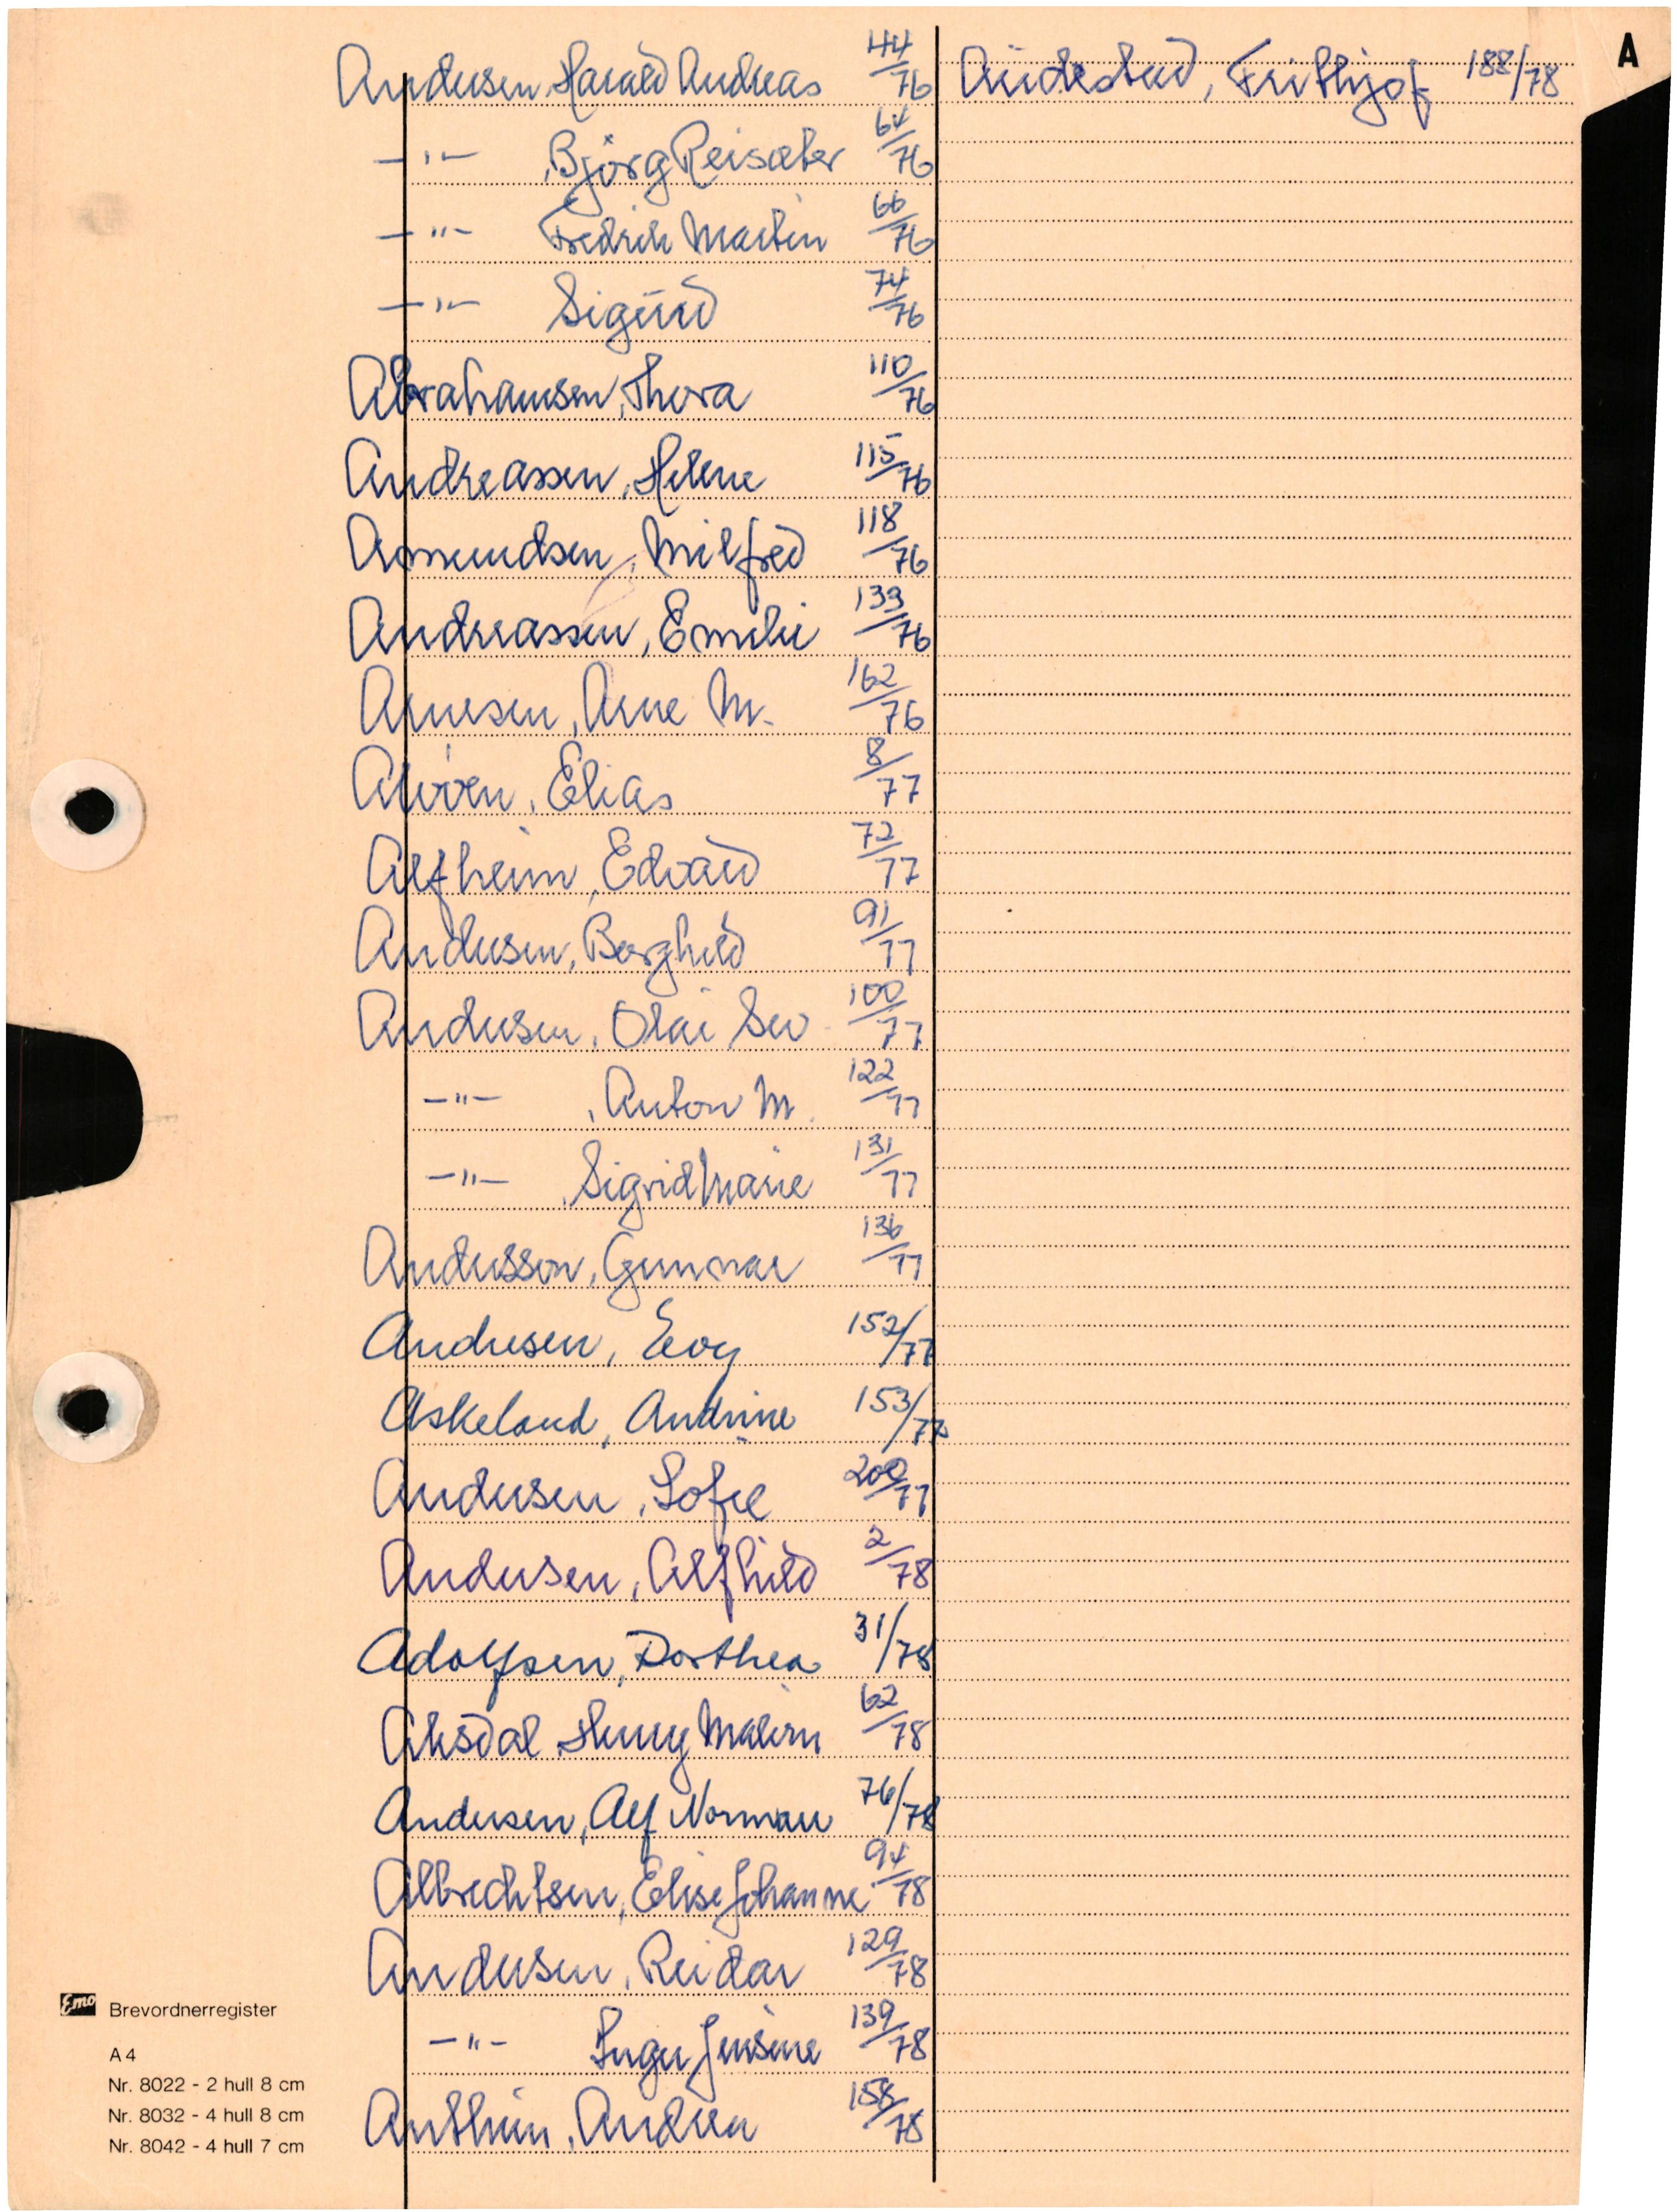 Andersen, Harald Andreas 44/76
—"— , Bjørg Reisæter 64/76
—"— Fredrik Martin 66/76
—"— Sigurd 74/76
Abrahamsen, Thora 110/76
Andreassen, Helene 115/76
Asmundsen, Milfred 118/76
Andreassen, Emelie 133/76
Arnesen, Arne M. 162/76
Elias 8/77
Alfheim, Edvard 72/77
Andersen, Borghild 91/77
Andersen, Olai 100/77
—"— , Anton M. 122/77
—"— , Sigrid Marie 131/77
Andersson, Gunnar 136/77
Andresen, Evy 152/77
Askeland, Andrine 153/77
Andersen, Sofie 200/77
Andersen, Alfhild 2/78
Adolfsen, Dorthea 31/78
Aksdal Henny Malene 62/78
Andersen, Alf Norman 76/78
Albrechtsen, Elise Johanne 94/78
Andersen, Reidar 129/78
—"— Inger Jensine 139/78
Andrea 158/78
Audestad, Frithjof 188/78
A
Emo Brevordnerregister
A 4
Nr. 8022 - 2 hull 8 cm
Nr. 8032 - 4 hull 8 cm
Nr. 8042 - 4 hull 7 cm